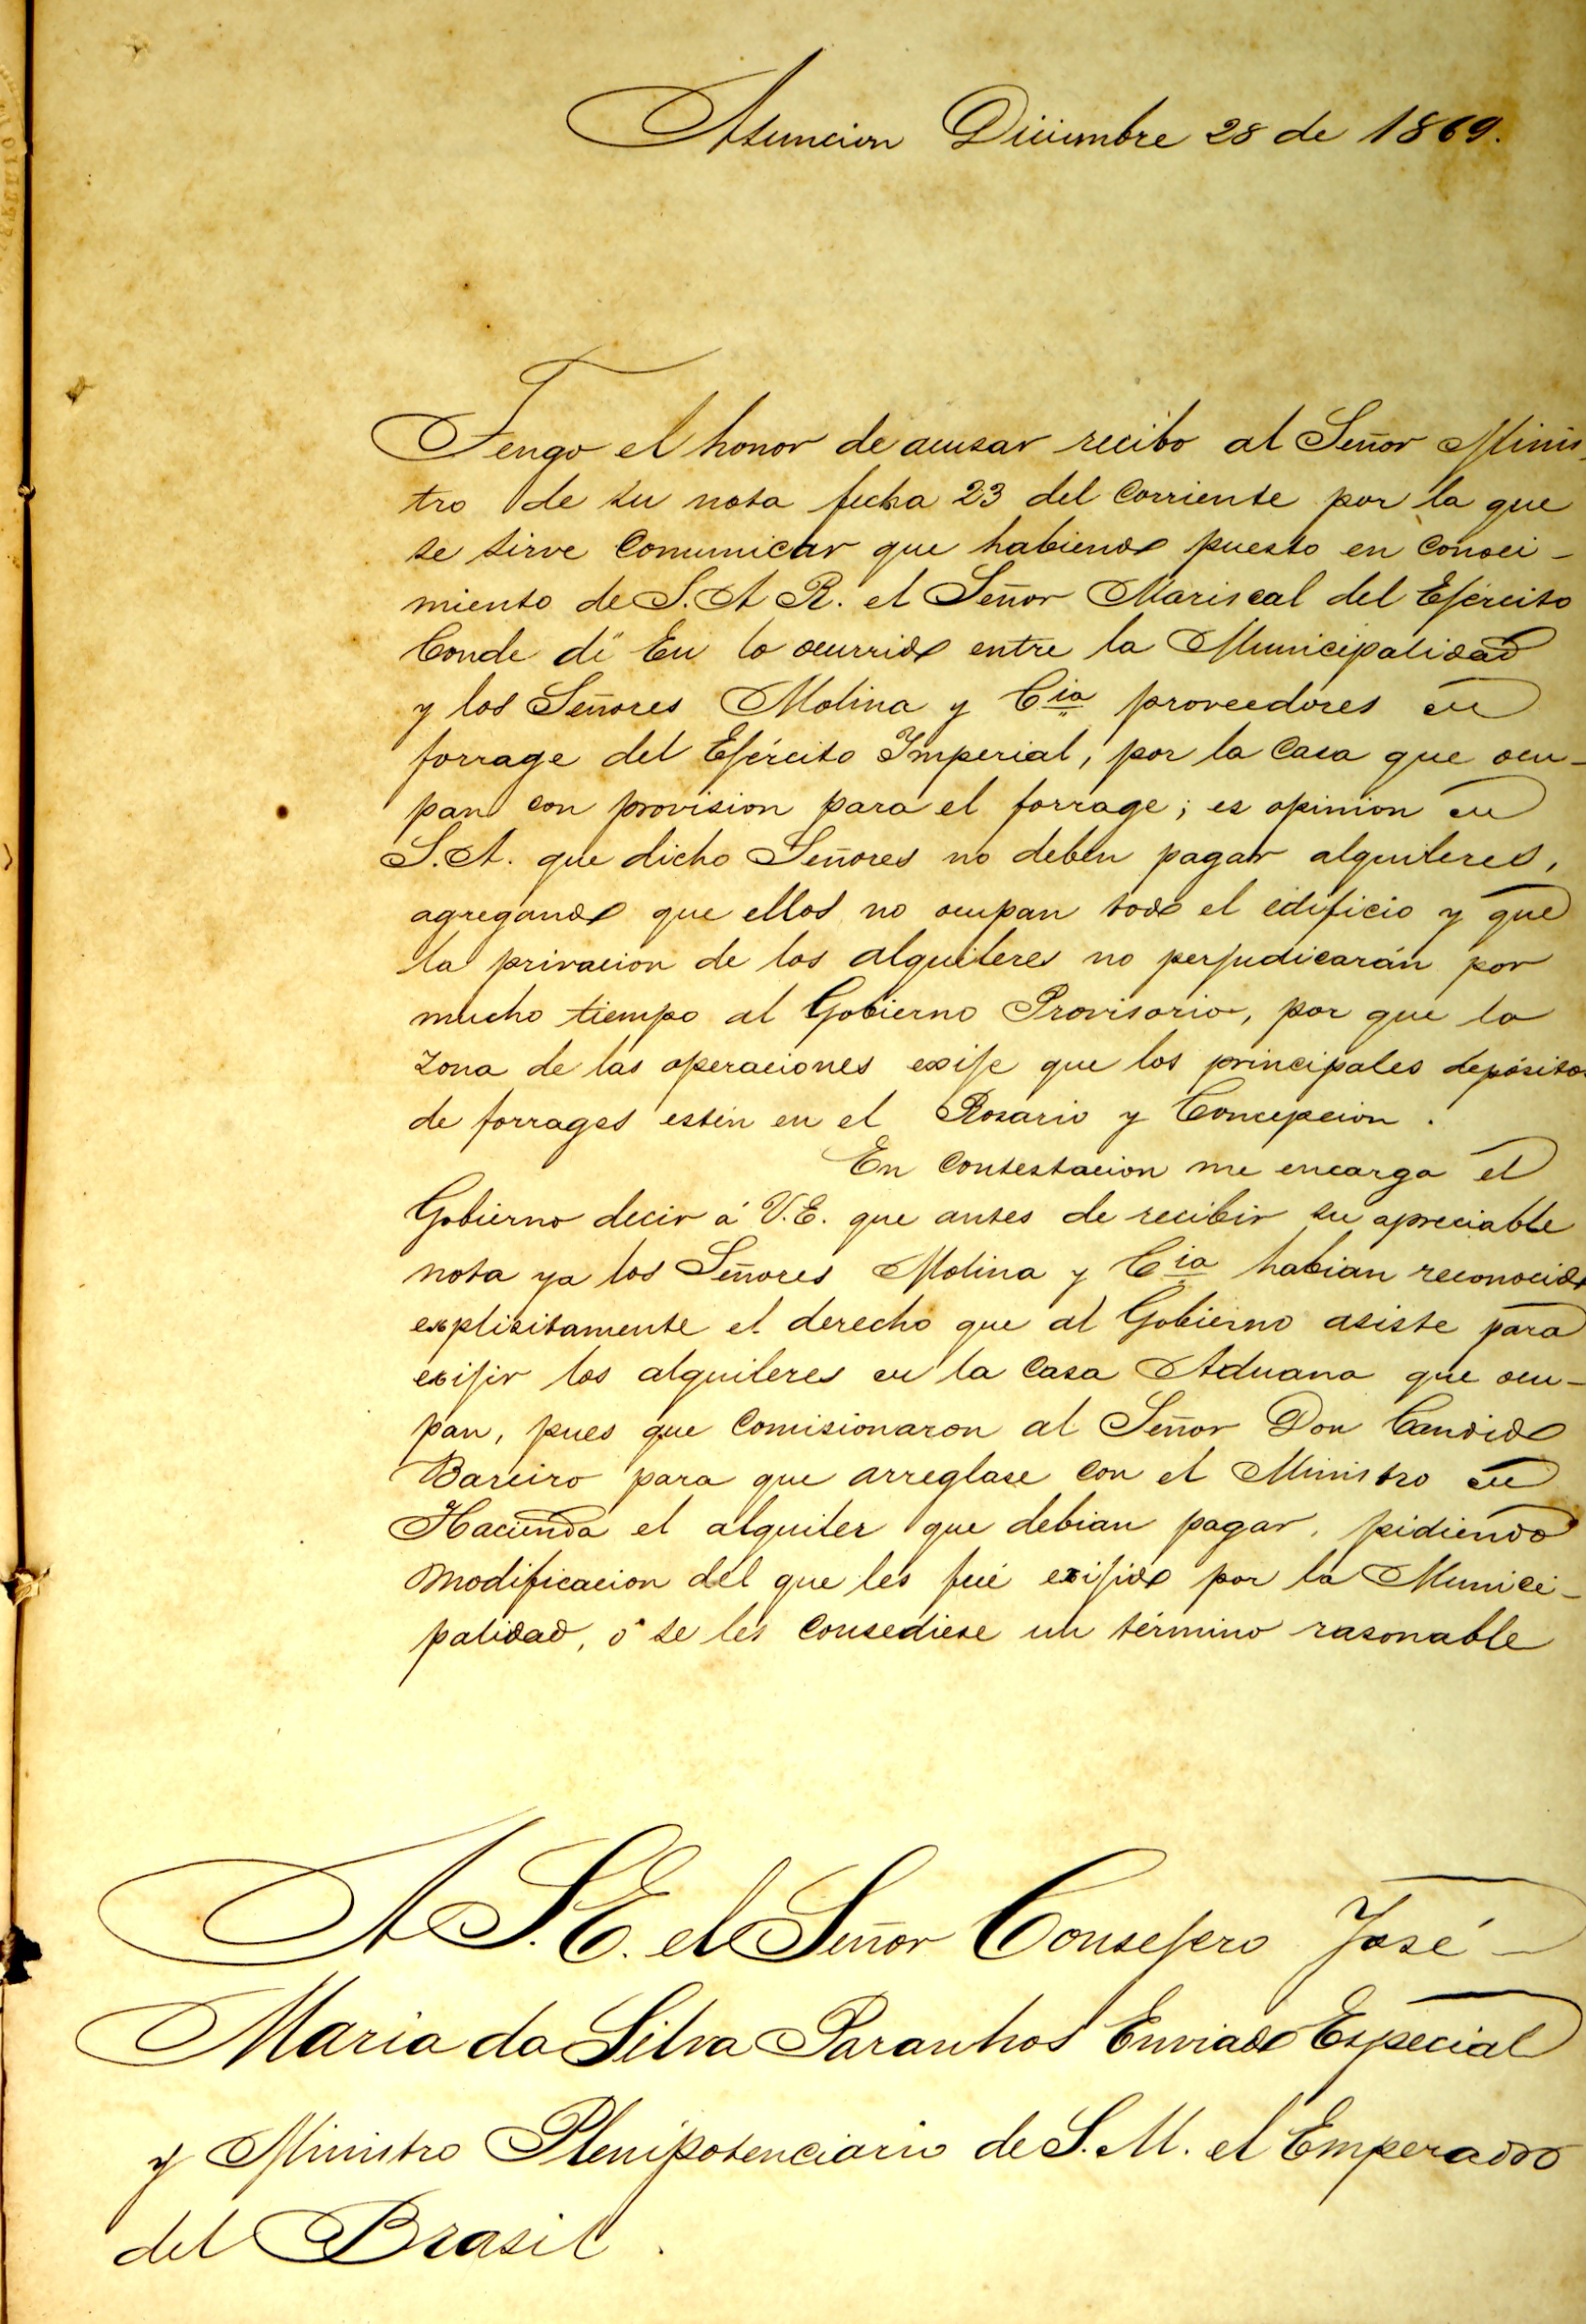 Asuncion Diciembre 28 de 1869.
Tengo el honor de acusar recibo al Señor Minis-
tro de su nota fecha 23 del corriente por la que
se sirve comunicar que habiendo puesto en conoci-
miento de S. A R. el Señor Mariscal del Ejército
Conde d'Eu lo ocurrido entre la Municipalidad
y los Señores Molina y Cia proveedores de
forrage del Ejército Imperial, por la casa que ocu-
pan con provision para el forrage; es opinion de
S. A. que dicho Señores no deben pagar alquileres,
agregando que ellos no ocupan todo el edificio y que
la privacion de los alquileres no perjudicarán por
mucho tiempo al Gobierno Provisorio, por que la
zona de las operaciones exije que los principales depósitos
de forrages estén en el Rosario y Concepcion.
En contestacion me encarga el
Gobierno decir á V. E. que antes de recibir su apreciable
nota ya los Señores Molina y Cia habian reconocido
explisitamente el derecho que al Gobierno asiste para
exijir los alquileres de la casa Aduana que ocu-
pan, pues que comisionaron al Señor Don Candido
Bareiro para que arreglase con el Ministro de
Hacienda el alquiler que debian pagar, pidiendo
modificacion del que les fué exijido por la Munici-
palidad, ó se les consediese un término rasonable
A S. E. el Señor Consejero José
Maria da Silva Paranhos Enviado Especial
y Ministro Plenipotenciario de S. M. el Emperador
del Brasil.